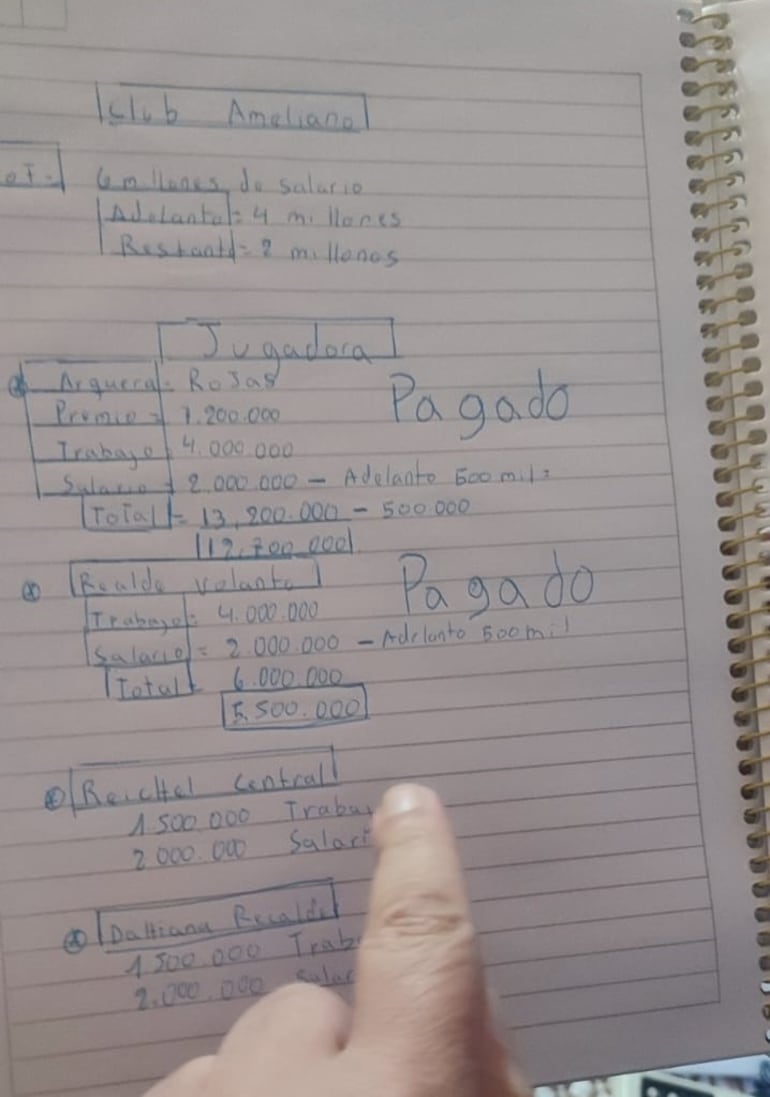 Club Ameliano
OT= 6 millones de salario
Adelanto= 4 millones
Restante= 2 millones
Jugadora
Arquera= Rojas
Pagado
Premio= 7.200.000
Trabajo= 4.000.000
Salario= 2.000.000 - Adelanto 500 mil=
Total= 13,200.000 - 500.000
12.700.000
Realde Volante
Pagado
Trabajo= 4.000.000
Salario= 2.000.000 - Adelanto 500 mil
Total= 6.000.000
5.500.000
Central
1.500.000 Traba
2.000.000 Salari
Recalde
1.500.000 Trab
2.000.000 Salar